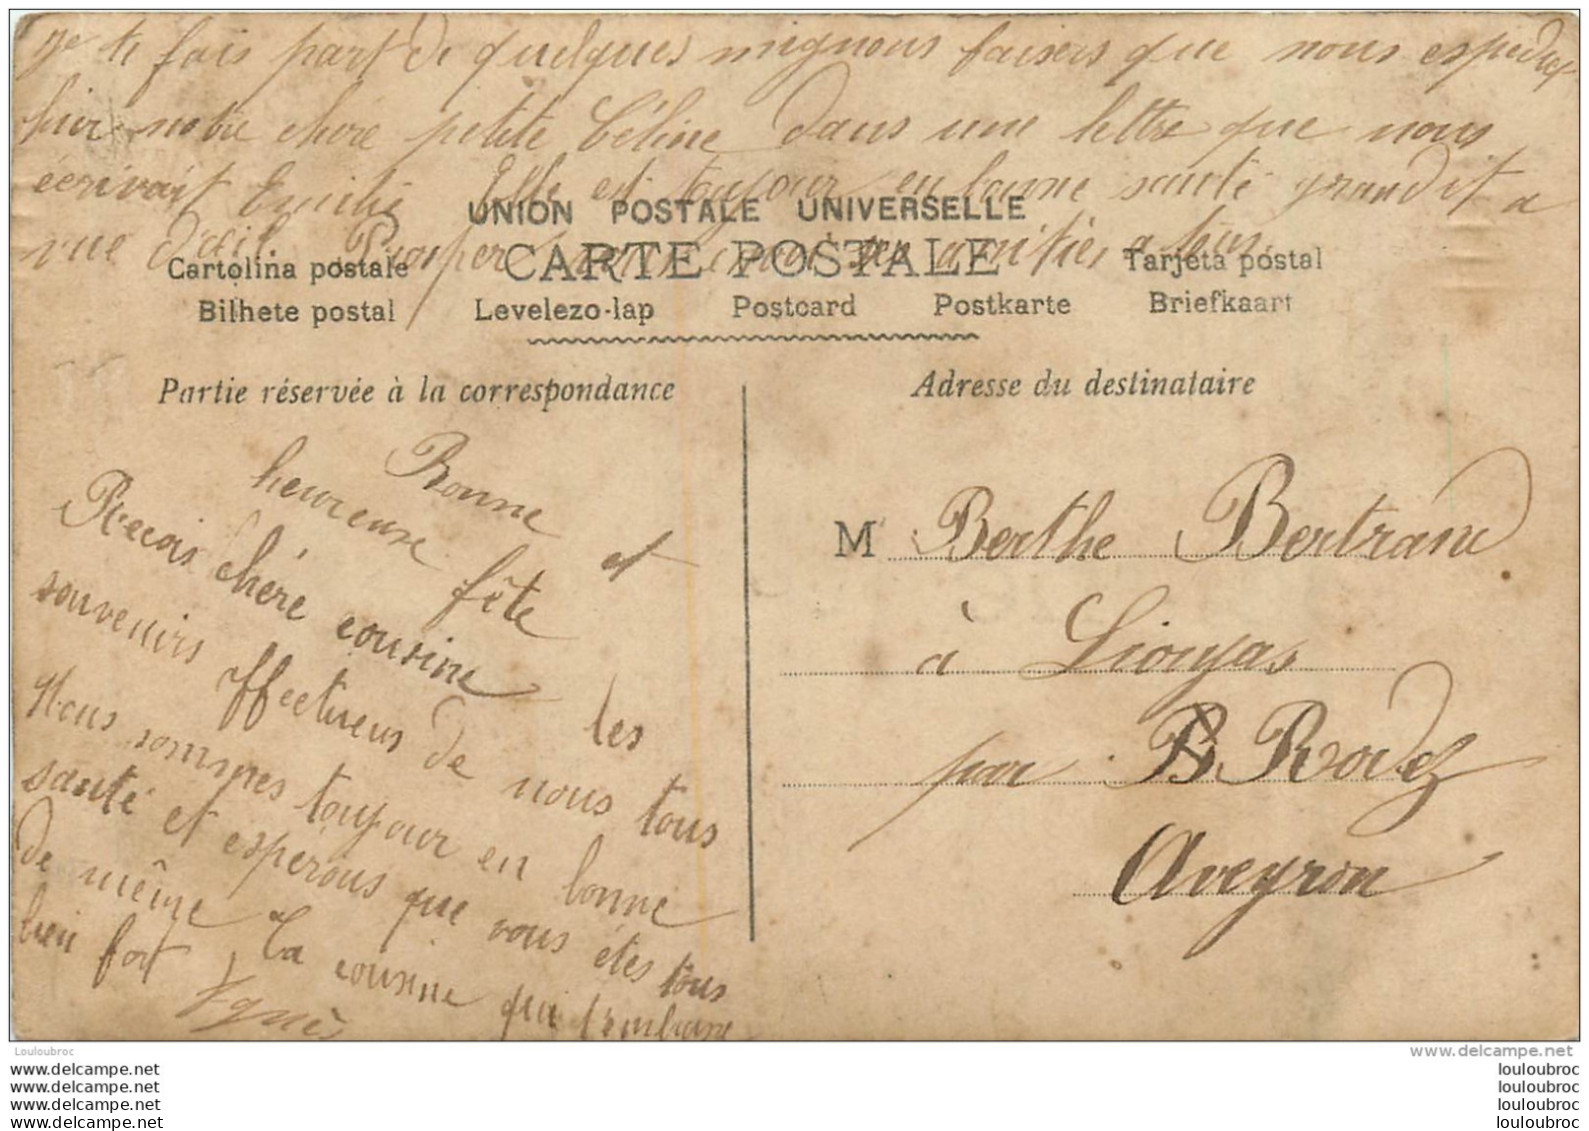 Je te fais part de quelques mignons baisers que nous espediez
hier notre chere petite Céline dans une lettre que nous
écrivait Emilie Elle est toujour en bonne santé grandit a
vue d'œil. Prosper amities a tous
UNION POSTALE UNIVERSELLE
CARTE POSTALE
Cartolina postale
Tarjeta postal
Bilhete postal
Levelezo-lap
Postcard
Postkarte
Briefkaart
Partie réservée à la correspondance
Bonne et
heureuse fête
Recois chère cousine les
souvenirs Effectueus de nous tous
Nous sommes toujour en bonne
santé et espérous que vous étes tous
de même, La cousine qui t'embrasse
bien fort
Agnès
Adresse du destinataire
M Berthe Bertrand
à Lioujas
par Rodez
Aveyron
Louloubroc
www.delcampe.net
www.delcampe.net
www.delcampe.net
www.delcampe.net
www.delcampe.net
louloubroc
louloubroc
louloubroc
louloubroc